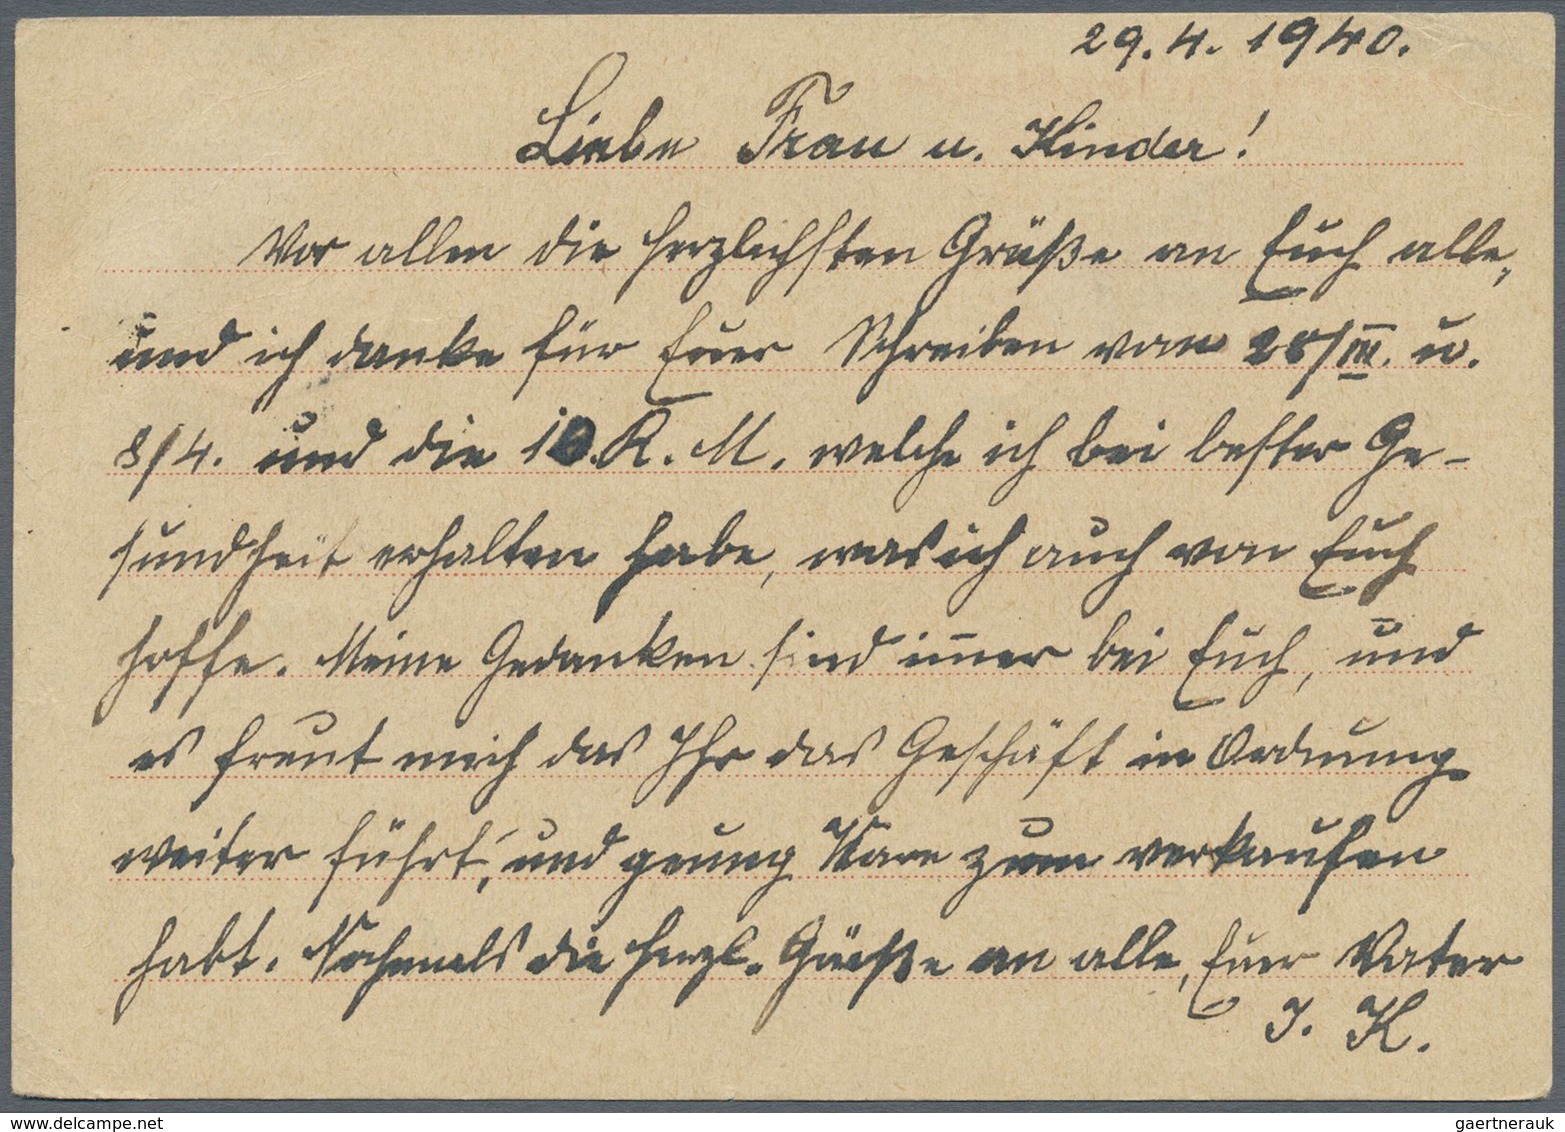 29.4.1940.
Liebe Frau u. Kinder!
Vor allem die herzlichsten Grüße an Euch alle,
und ich danke für Euer Schreiben vom 28/III. u.
8/4. und die 10.R.M. welche ich bei bester Ge-
sundheit erhalten habe, was ich auch von Euch
hoffe. Meine Gedanken sind im̅er bei Euch, und
es freut mich das Ihr das Geschäft in Ordnung
weiter führt, und genug Ware zum verkaufen
habt. Nochmals die herzl. Grüße an alle, Euer Vater
J. K.
gaertnerauk @ delcampe.net